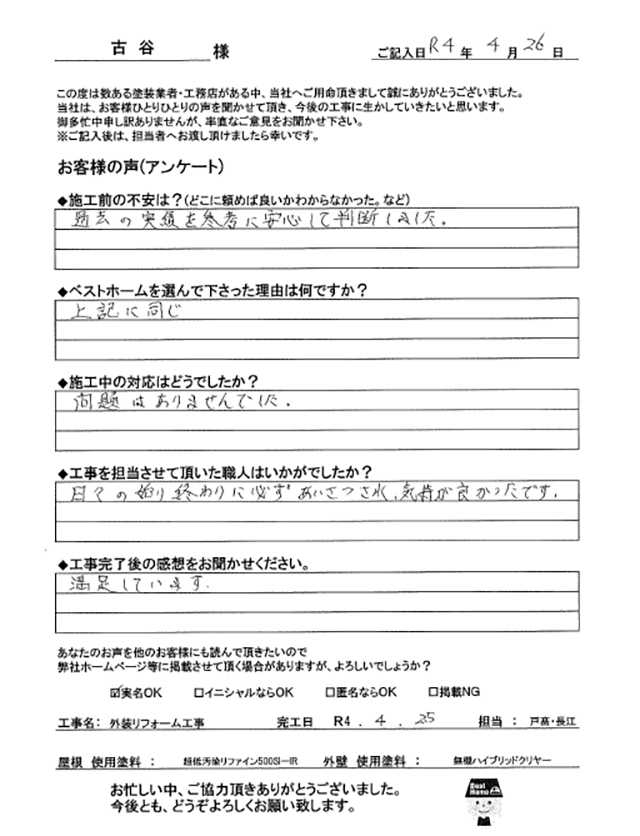 古谷 様
ご記入日 R4 年 4 月 26 日
この度は数ある塗装業者・工務店がある中、当社へご用命頂きまして誠にありがとうございました。
当社は、お客様ひとりひとりの声を聞かせて頂き、今後の工事に生かしていきたいと思います。
御多忙中申し訳ありませんが、率直なご意見をお聞かせ下さい。
※ご記入後は、担当者へお渡し頂けましたら幸いです。
お客様の声(アンケート)
◆施工前の不安は？(どこに頼めば良いかわからなかった。など)
過去の実績を参考に安心して判断しました。
◆ベストホームを選んで下さった理由は何ですか？
上記に同じ
◆施工中の対応はどうでしたか？
問題はありませんでした。
◆工事を担当させて頂いた職人はいかがでしたか？
日々の始り終わりに必ずあいさつされ、気持が良かったです。
◆工事完了後の感想をお聞かせください。
満足しています。
あなたのお声を他のお客様にも読んで頂きたいので
弊社ホームページ等に掲載させて頂く場合がありますが、よろしいでしょうか？
☑実名OK □イニシャルならOK □匿名ならOK □掲載NG
工事名： 外装リフォーム工事 完工日 R4 . 4 . 25 担当 ： 戸髙・長江
屋根 使用塗料 ： 超低汚染リファイン500SI-IR 外壁 使用塗料 ： 無機ハイブリッドクリヤー
お忙しい中、ご協力頂きありがとうございました。
今後とも、どうぞよろしくお願い致します。
Best
Home